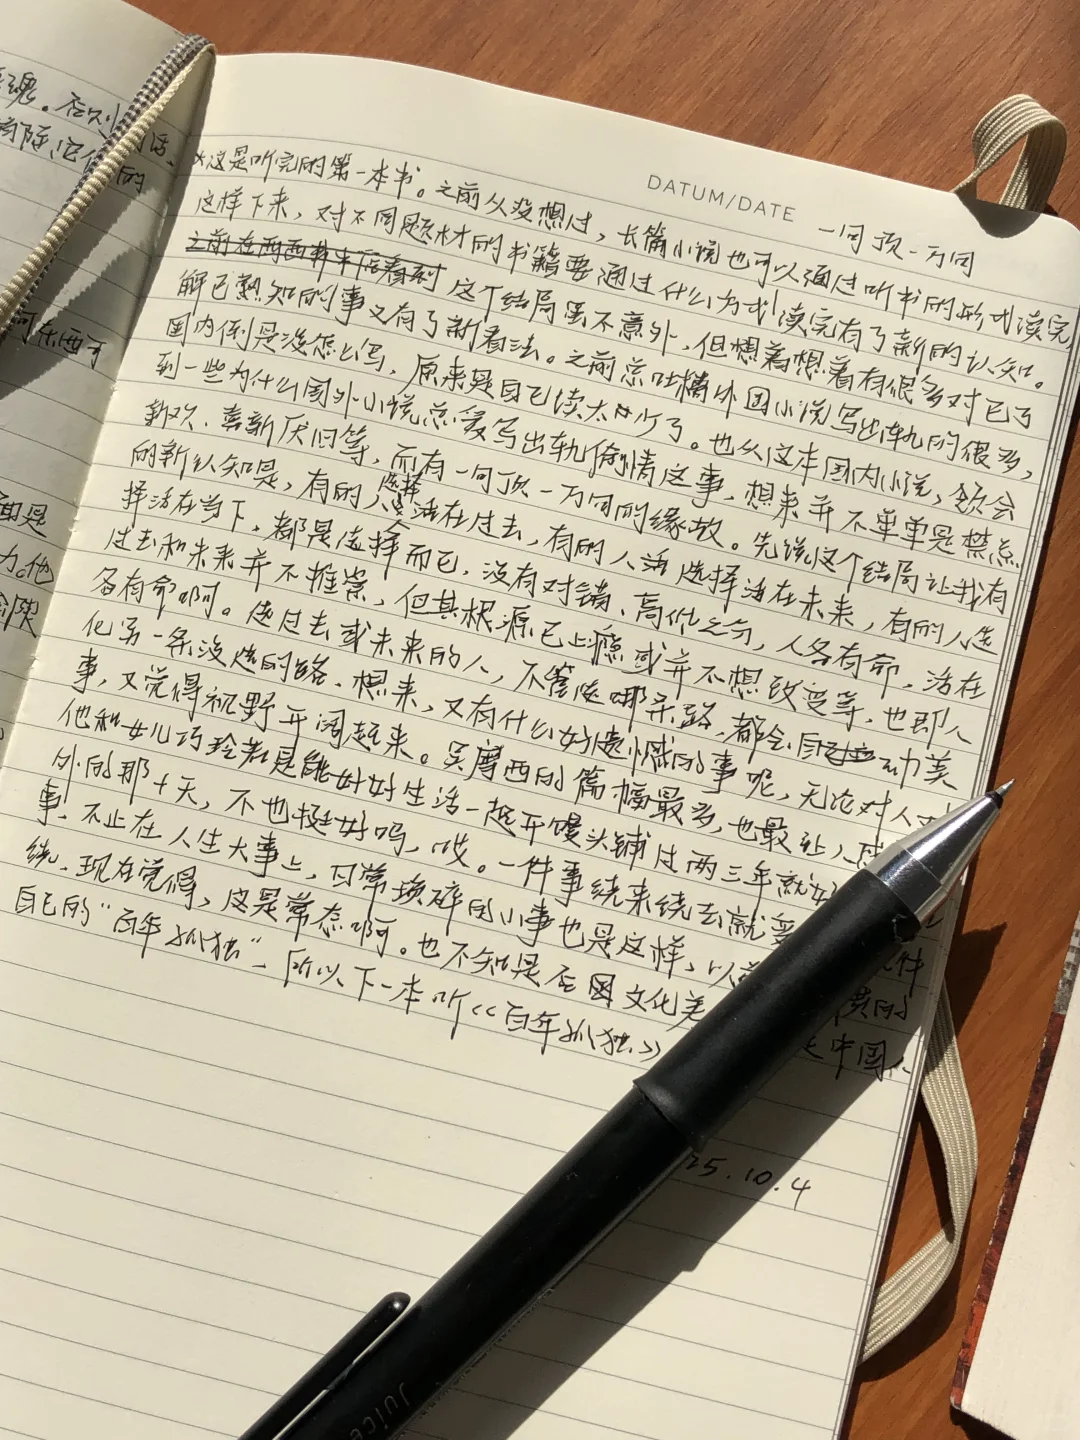 魂。否则
的
DATUM/DATE
一句顶一万句
*这是听完的第一本书。之前从没想过,长篇小说也可以通过听书的形式读完
这样下来,对不同题材的书籍要通过什么方式读完有了新的认知。
之前在西西弗书店看到 这个结局虽不意外,但想着想着有很多对已了
解已熟知的事又有了新看法。之前总吐槽外国小说写出轨的很多,
国内倒是没怎么写,原来是自己读太少了。也从这本国内小说,领会
到一些为什么国外小说总爱写出轨偷情这事,想来并不单单是禁忌
新欢、喜新厌旧等,而有一句顶一万句的缘故。先说这个结局让我有
的新认知是,有的人选择活在过去,有的人活选择活在未来,有的人选
择活在当下,都是选择而已,没有对错、高低之分,人各有命,活在
过去和未来并不推崇,但其根源已上瘾或并不想改变等,也即人
各有命啊。选过去或未来的人,不管选哪条路,都会自动美
化另一条没选的路,想来,又有什么好遗憾的事呢,无论对人
事,又觉得视野开阔起来。吴摩西的篇幅最多,也最让人
他和女儿巧玲若是能好好生活一起开馒头铺过两三年就
外的那十天,不也挺好吗,哎。一件事绕来绕去就变
事,不止在人生大事上,日常琐碎的小事也是这样,以前
绕,现在觉得,这是常态啊。也不知是否因文化差
自己的"百年孤独"、所以下一本听《百年孤独》 中国人
25.10.4
Juice